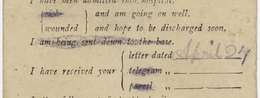 I have been admitted into hospital.
sick } and am going on well.
wounded } and hope to be discharged soon.
I am being sent down to the base.
letter dated April 27
I have received your telegram „
parcel „